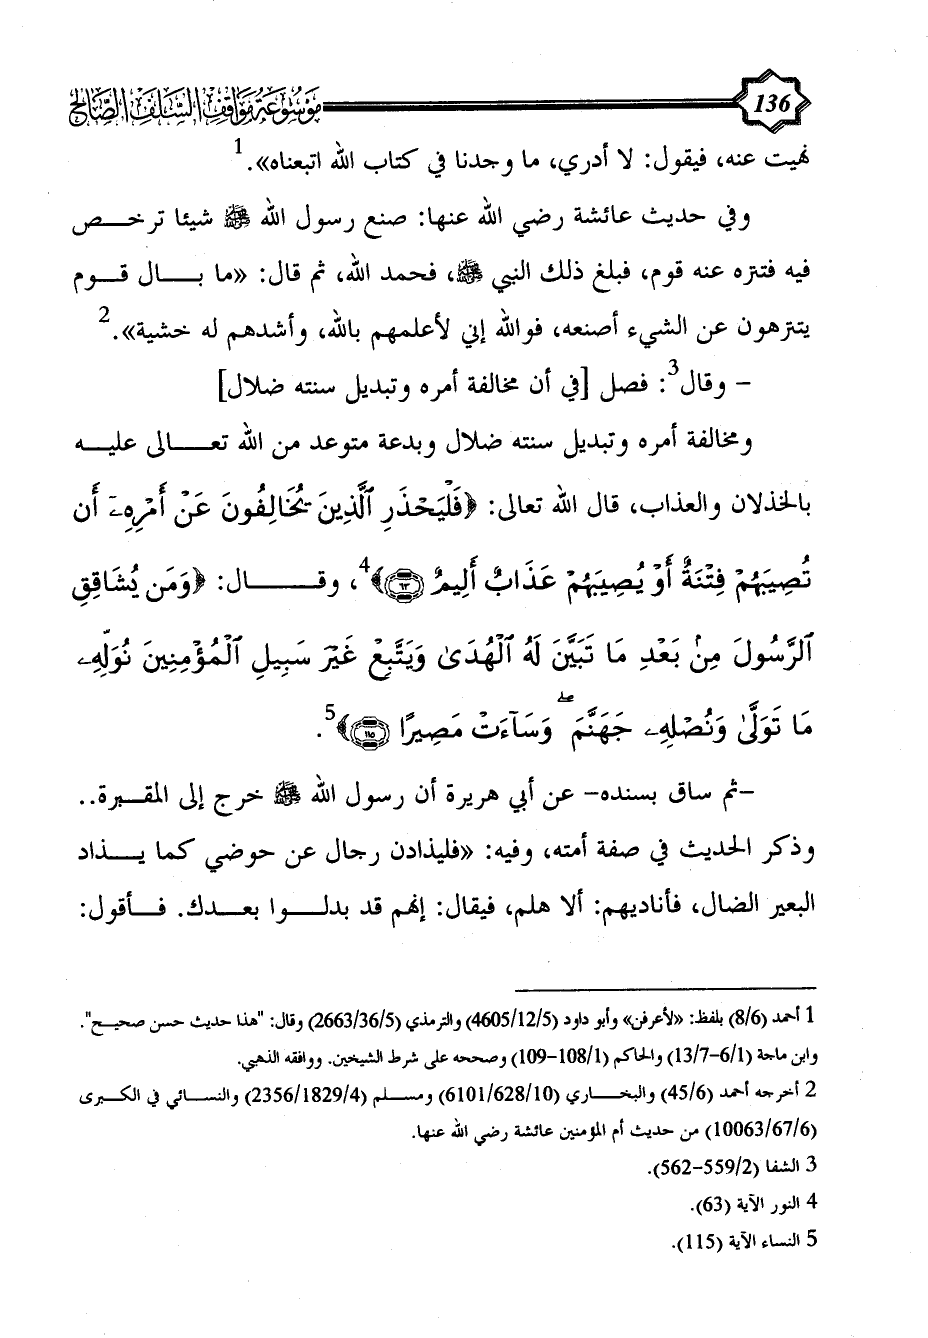 موسوعة مواقف السلف الصالح 136
نهيت عنه، فيقول: لا أدري، ما وجدنا في كتاب الله اتبعناه».1
وفي حديث عائشة رضي الله عنها: صنع رسول الله ﷺ شيئا ترخص
فيه فتنزه عنه قوم، فبلغ ذلك النبي ﷺ، فحمد الله، ثم قال: «ما بال قوم
يتنزهون عن الشيء أصنعه، فوالله إني لأعلمهم بالله، وأشدهم له خشية».2
- وقال3: فصل [في أن مخالفة أمره وتبديل سنته ضلال]
ومخالفة أمره وتبديل سنته ضلال وبدعة متوعد من الله تعالى عليه
بالخذلان والعذاب، قال الله تعالى: ﴿فَلْيَحْذَرِ ٱلَّذِينَ يُخَالِفُونَ عَنْ أَمْرِهِۦٓ أَن
تُصِيبَهُمْ فِتْنَةٌ أَوْ يُصِيبَهُمْ عَذَابٌ أَلِيمٌ ٦٣﴾4، وقال: ﴿وَمَن يُشَاقِقِ
ٱلرَّسُولَ مِنۢ بَعْدِ مَا تَبَيَّنَ لَهُ ٱلْهُدَىٰ وَيَتَّبِعْ غَيْرَ سَبِيلِ ٱلْمُؤْمِنِينَ نُوَلِّهِۦ
مَا تَوَلَّىٰ وَنُصْلِهِۦ جَهَنَّمَ ۖ وَسَآءَتْ مَصِيرًا ١١٥﴾5.
-ثم ساق بسنده- عن أبي هريرة أن رسول الله ﷺ خرج إلى المقبرة..
وذكر الحديث في صفة أمته، وفيه: «فليذادن رجال عن حوضي كما يذاد
البعير الضال، فأناديهم: ألا هلم، فيقال: إنهم قد بدلوا بعدك. فأقول:
1 أحمد (8/6) بلفظ: «لأعرفن» وأبو داود (4605/12/5) والترمذي (2663/36/5) وقال: "هذا حديث حسن صحيح".
وابن ماجة (6/1-13/7) والحاكم (108/1-109) وصححه على شرط الشيخين. ووافقه الذهبي.
2 أخرجه أحمد (45/6) والبخاري (6101/628/10) ومسلم (2356/1829/4) والنسائي في الكبرى
(10063/67/6) من حديث أم المؤمنين عائشة رضي الله عنها.
3 الشفا (559/2-562).
4 النور الآية (63).
5 النساء الآية (115).